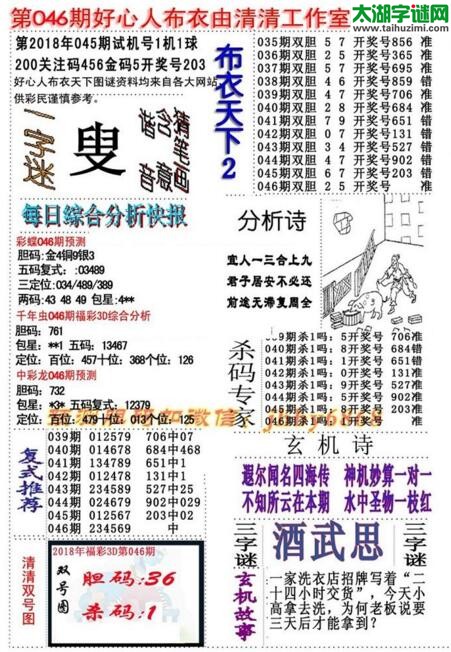 第046期好心人布衣由清清工作室
太湖字谜网
www.taihuzimi.com
第2018年045期试机号1机1球
200关注码456金码5开奖号203
好心人布衣天下图谜资料均来自各大网站
供彩民谨慎参考。
叟
每日综合分析快报
彩蝶046期预测
胆码:金4铜9银3
五码复式: :03489
三定位:034/489/389
两码: 43 48 49 包星:4**
千年虫046期福彩3D综合分析
胆码: 761
包星: **1 五码: 13467
定位: 百位: 457十位: 368个位: 126
中彩龙046期预测
胆码: 732
包星: *3* 五码复式: 12379
定位: 百位: 479十位: 013个位: 125
布衣天下2
035期双胆 5 7 开奖号856 准
036期双胆 2 4 开奖号365 错
038期双胆 4 6 开奖号468 准
039期双胆 2 7 开奖号706 准
040期双胆 4 8 开奖号684 准
041期双胆 7 9 开奖号651 错
042期双胆 0 7 开奖号131 错
043期双胆 4 7 开奖号527 准
044期双胆 4 7 开奖号902 错
045期双胆 6 7 开奖号203 错
046期双胆 2 5 开奖号 准
分析诗
宜人一三合上九
君子居安不必还
前途无滞复周全
杀码专家
039期杀1吗: 5开奖号 706准
040期杀1吗: 8开奖号 684错
041期杀1吗: 1开奖号 651错
042期杀1吗: 0开奖号 131准
043期杀1吗: 9开奖号 527准
044期杀1吗: 4开奖号 902准
045期杀1吗: 8开奖号 203准
046期杀1吗: 1开奖号 准
复式推荐
039期 012579 706中07
040期 014678 684中468
041期 134789 651中1
042期 012478 131中1
043期 234589 527中25
044期 024679 902中029
045期 012567 203中02
046期 234569 中
玄机诗
遐尔闻名四海传 神机妙算一对一
不知所云在本期 水中圣物一枝红
清清双号图
2018年福彩3D第046期
双号图
胆码:36
杀码:1
三字谜
酒武思
三字谜
玄机故事
一家洗衣店招牌写着“二
十四小时交货”，今天小
高拿去洗，为何老板说要
三天后才能拿到？